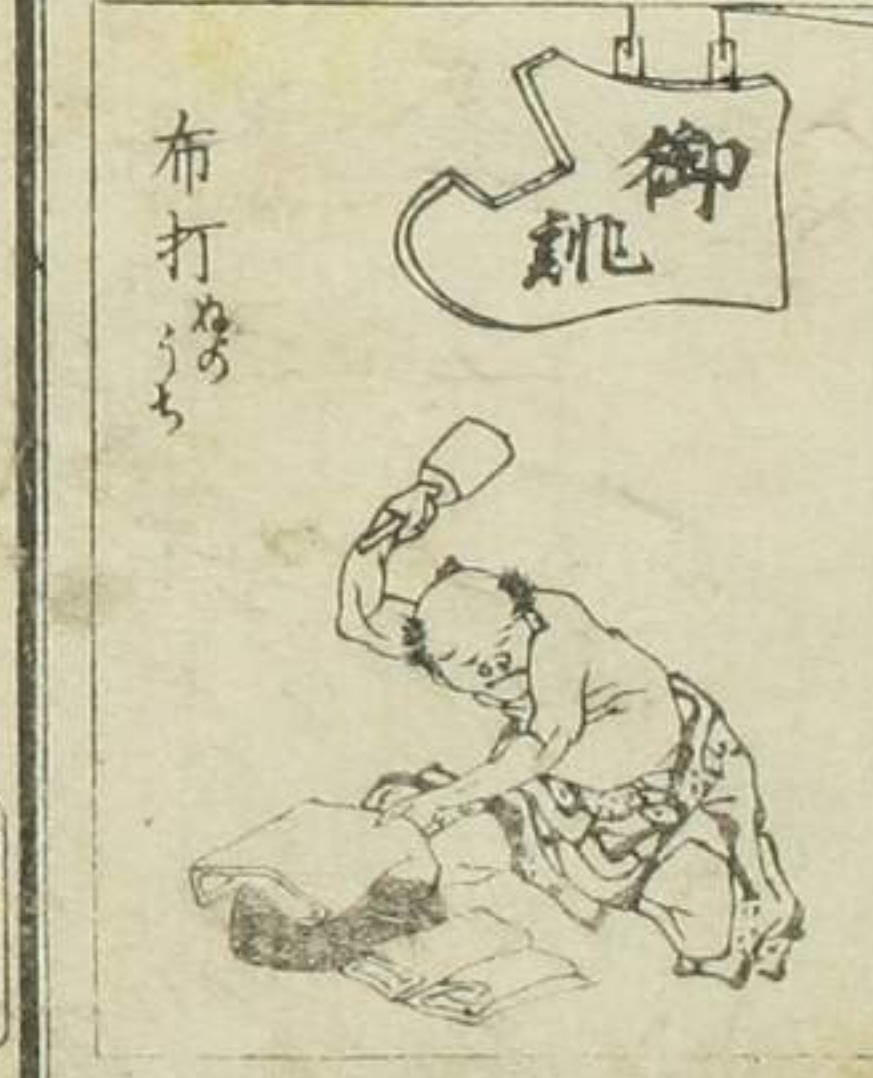 御
誂
布打
ぬの
うち